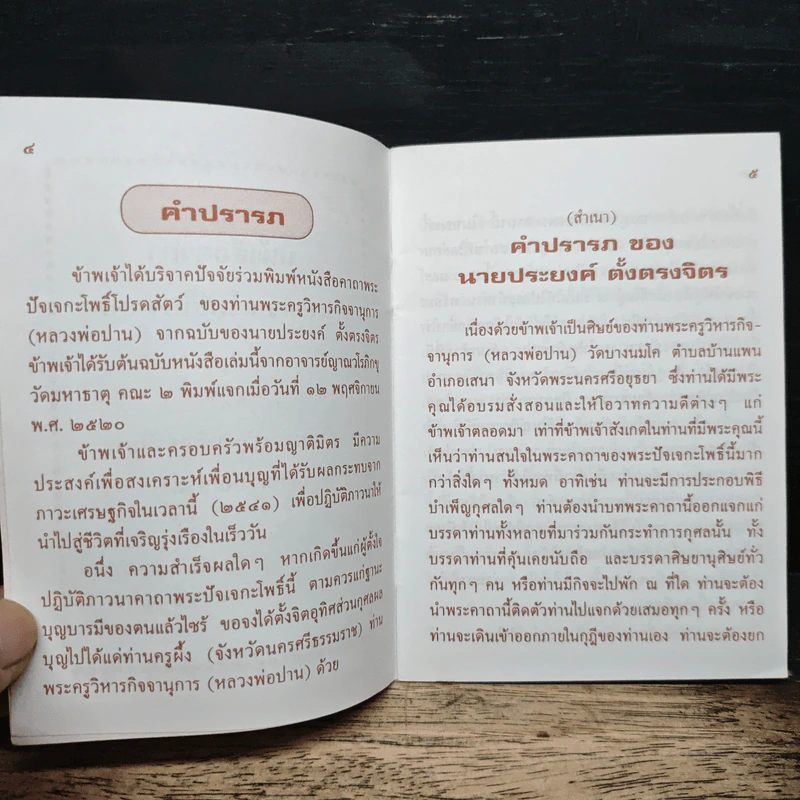 ๔
คำปรารภ
ข้าพเจ้าได้บริจาคปัจจัยร่วมพิมพ์หนังสือคาถาพระ
ปัจเจกะโพธิ์โปรดสัตว์ ของท่านพระครูวิหารกิจจานุการ
(หลวงพ่อปาน) จากฉบับของนายประยงค์ ตั้งตรงจิตร
ข้าพเจ้าได้รับต้นฉบับหนังสือเล่มนี้จากอาจารย์ญาณวโรภิกขุ
วัดมหาธาตุ คณะ ๒ พิมพ์แจกเมื่อวันที่ ๑๒ พฤศจิกายน
พ.ศ. ๒๕๒๐
ข้าพเจ้าและครอบครัวพร้อมญาติมิตร มีความ
ประสงค์เพื่อสงเคราะห์เพื่อนบุญที่ได้รับผลกระทบจาก
ภาวะเศรษฐกิจในเวลานี้ (๒๕๔๑) เพื่อปฏิบัติภาวนาให้
นำไปสู่ชีวิตที่เจริญรุ่งเรืองในเร็ววัน
อนึ่ง ความสำเร็จผลใดๆ หากเกิดขึ้นแก่ผู้ตั้งใจ
ปฏิบัติภาวนาคาถาพระปัจเจกะโพธิ์นี้ ตามควรแก่ฐานะ
บุญบารมีของตนแล้วไซร้ ขอจงได้ตั้งจิตอุทิศส่วนกุศลผล
บุญไปได้แด่ท่านครูผึ้ง (จังหวัดนครศรีธรรมราช) ท่าน
พระครูวิหารกิจจานุการ (หลวงพ่อปาน) ด้วย
๕
(สำเนา)
คำปรารภ ของ
นายประยงค์ ตั้งตรงจิตร
เนื่องด้วยข้าพเจ้าเป็นศิษย์ของท่านพระครูวิหารกิจ-
จานุการ (หลวงพ่อปาน) วัดบางนมโค ตำบลบ้านแพน
อำเภอเสนา จังหวัดพระนครศรีอยุธยา ซึ่งท่านได้มีพระ
คุณได้อบรมสั่งสอนและให้โอวาทความดีต่างๆ แก่
ข้าพเจ้าตลอดมา เท่าที่ข้าพเจ้าสังเกตในท่านที่มีพระคุณนี้
เห็นว่าท่านสนใจในพระคาถาของพระปัจเจกะโพธิ์นี้มาก
กว่าสิ่งใดๆ ทั้งหมด อาทิเช่น ท่านจะมีการประกอบพิธี
บำเพ็ญกุศลใดๆ ท่านต้องนำบทพระคาถานี้ออกแจกแก่
บรรดาท่านทั้งหลายที่มาร่วมกันกระทำการกุศลนั้น ทั้ง
บรรดาท่านที่คุ้นเคยนับถือ และบรรดาศิษยานุศิษย์ทั่ว
กันทุกๆ คน หรือท่านมีกิจจะไปพัก ณ ที่ใด ท่านจะต้อง
นำพระคาถานี้ติดตัวท่านไปแจกด้วยเสมอทุกๆ ครั้ง หรือ
ท่านจะเดินเข้าออกภายในกุฎีของท่านเอง ท่านจะต้องยก